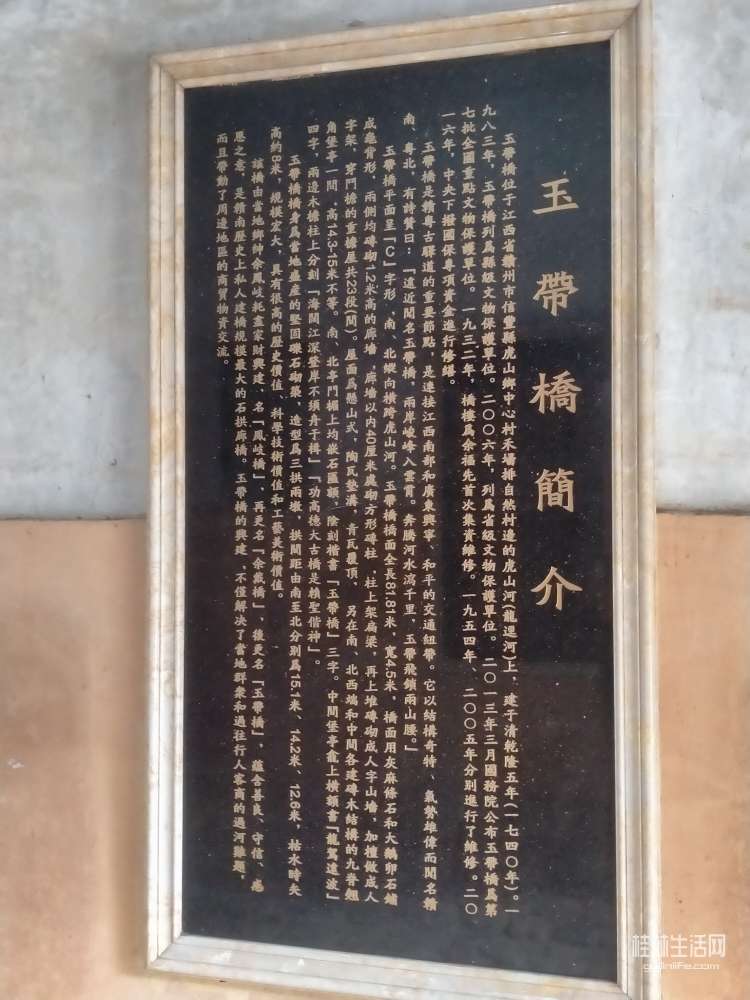 玉帶橋簡介
玉帶橋位于江西省贛州市信豐縣虎山鄉中心村禾場排自然村邊的虎山河(龍迳河)上，建于清乾隆五年(一七四〇年)。一
九八三年，玉帶橋列爲縣級文物保護單位。二〇〇六年，列爲省級文物保護單位。二〇一三年三月國務院公布玉帶橋爲第
七批全國重點文物保護單位。一九三二年，橋樓爲余福先首次集資維修。一九五四年、二〇〇五年分别進行了維修。二〇
一六年，中央下撥國保專項資金進行修繕。
玉帶橋是贛粤古驛道的重要節點，是連接江西南部和廣東興寧、和平的交通紐帶。它以結構奇特、氣勢雄偉而聞名贛
南、粤北，有詩贊曰：「遠近聞名玉帶橋，兩岸峻峰入雲霄。奔騰河水瀉千里，玉帶飛鎖兩山腰。」
玉帶橋平面呈「C」字形，南、北縱向横跨虎山河。玉帶橋橋面全長81.81米，寬4.5米，橋面用灰麻條石和大鵝卵石鋪
成龜背形，兩側均磚砌1.2米高的廊墙，廊墙以内40厘米處砌方形磚柱，柱上架扁梁，再上堆磚砌成人字山墙，加檀做成人
字架，穿門檐的重檐屋共23段(間)。屋面爲懸山式，陶瓦墊溝，青瓦覆頂，另在南、北西端和中間各建磚木結構的九脊翹
角堡亭一間，高14.3-15米不等。南、北亭門楣上均嵌石匾額，陰刻楷書「玉帶橋」三字。中間堡亭龕上横額書「龍駕遠波」
四字，兩邊木檐柱上分刻「海闊江深登岸不須舟于楫」「功高德大古橋是賴聖偕神」。
玉帶橋橋身爲當地盛產的堅固礫石砌築，造型爲三拱兩墩，拱間距由南至北分别爲15.1米、14.2米、12.6米，枯水時矢
高約8米，規模宏大，具有很高的歷史價值、科學技術價值和工藝美術價值。
該橋由當地鄉紳余鳳岐耗盡家財興建，名「鳳岐橋」，再更名「余戴橋」，後更名「玉帶橋」，蘊含善良、守信、感
恩之意，是贛南歷史上私人建橋規模最大的石拱廊橋。玉帶橋的興建，不僅解决了當地群衆和過往行人客商的過河難題，
而且帶動了周邊地區的商貿物資交流。
桂林生活网
guilinlife.com